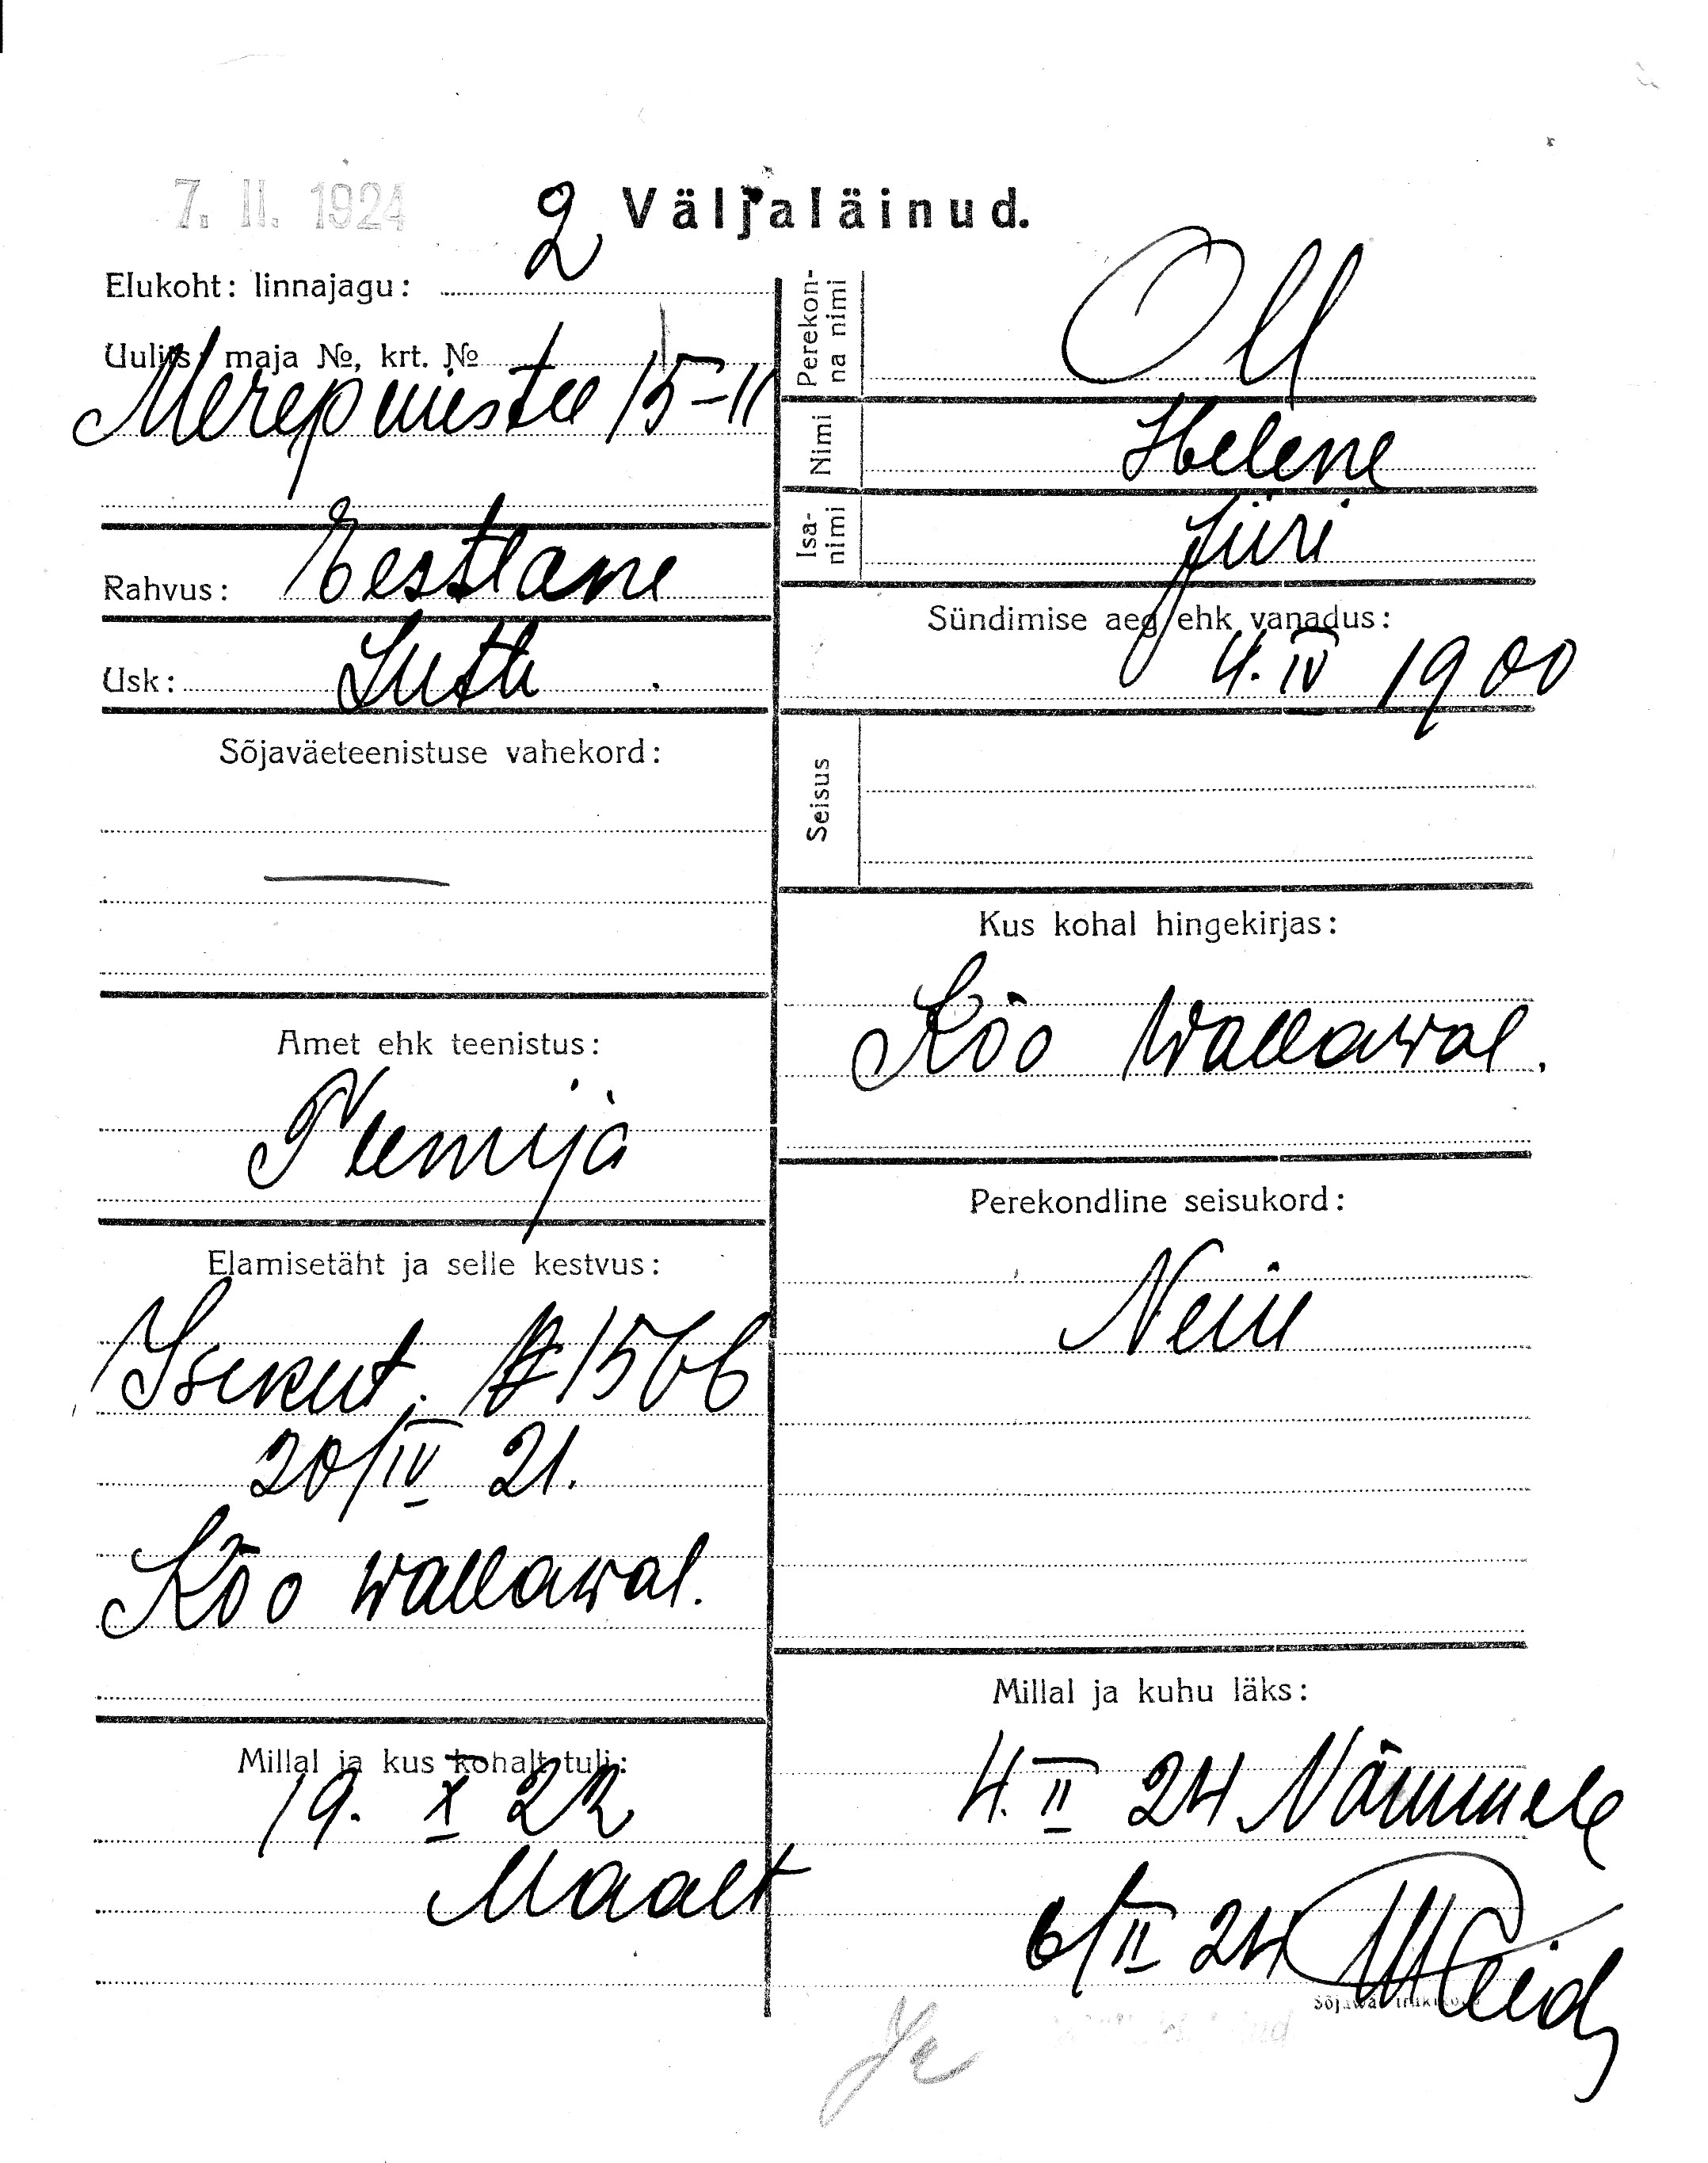 7. II. 1924
2 Väljaläinud.
Elukoht: linnajagu:
Uulits, maja №, krt. №
Merepuiestee 15-11
Rahvus: Eestlane
Usk: Luth.
Sõjaväeteenistuse vahekord:
—
Amet ehk teenistus:
Teenija
Elamisetäht ja selle kestvus:
Isikut. № 1566
20/IV 21.
Kõo wallawal.
Millal ja kus kohalt tuli:
19. X 22
Maalt
Perekonna nimi
Oll
Nimi
Helene
Isanimi
Jüri
Sündimise aeg ehk vanadus:
4. IV 1900
Seisus
Kus kohal hingekirjas:
Kõo Wallawal.
Perekondline seisukord:
Neiu
Millal ja kuhu läks:
4. II 24 Nõmmele
6/II 24